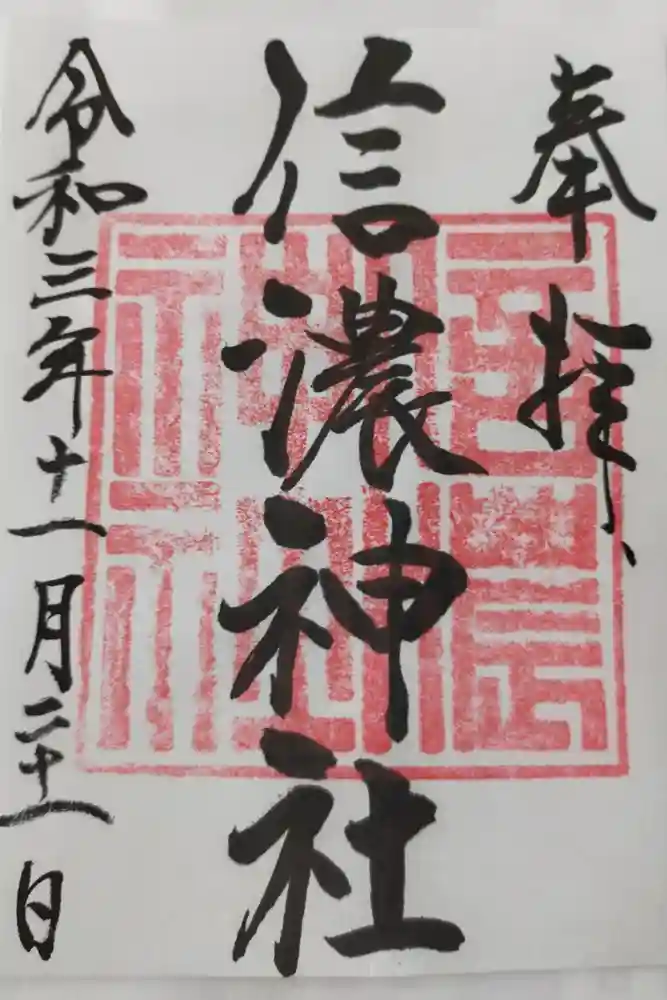 奉拝
信濃神社
令和三年十一月二十一日
信濃神社